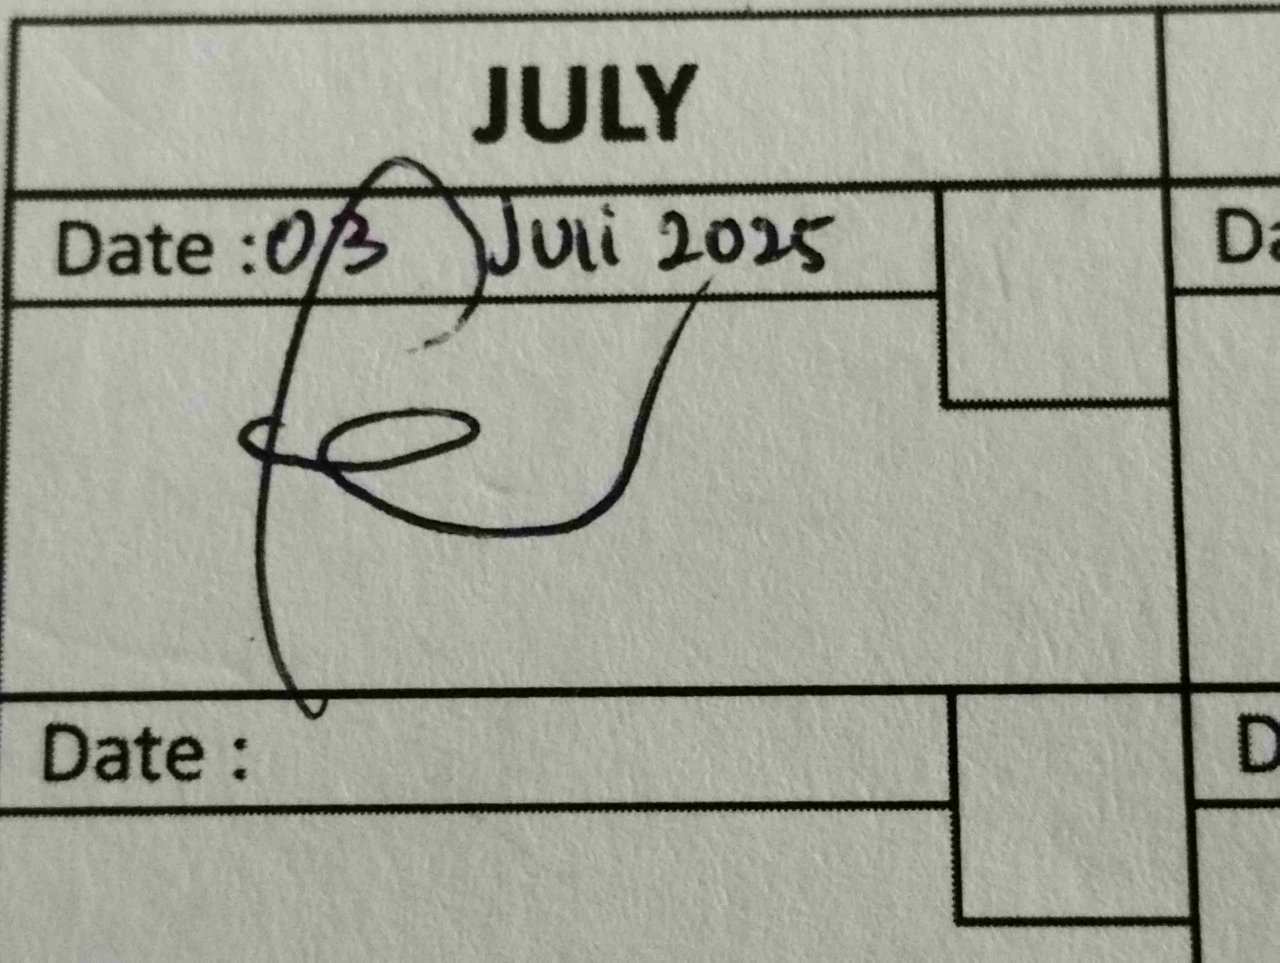 JULY
Date : 03 Juli 2025
Da
Date :
D